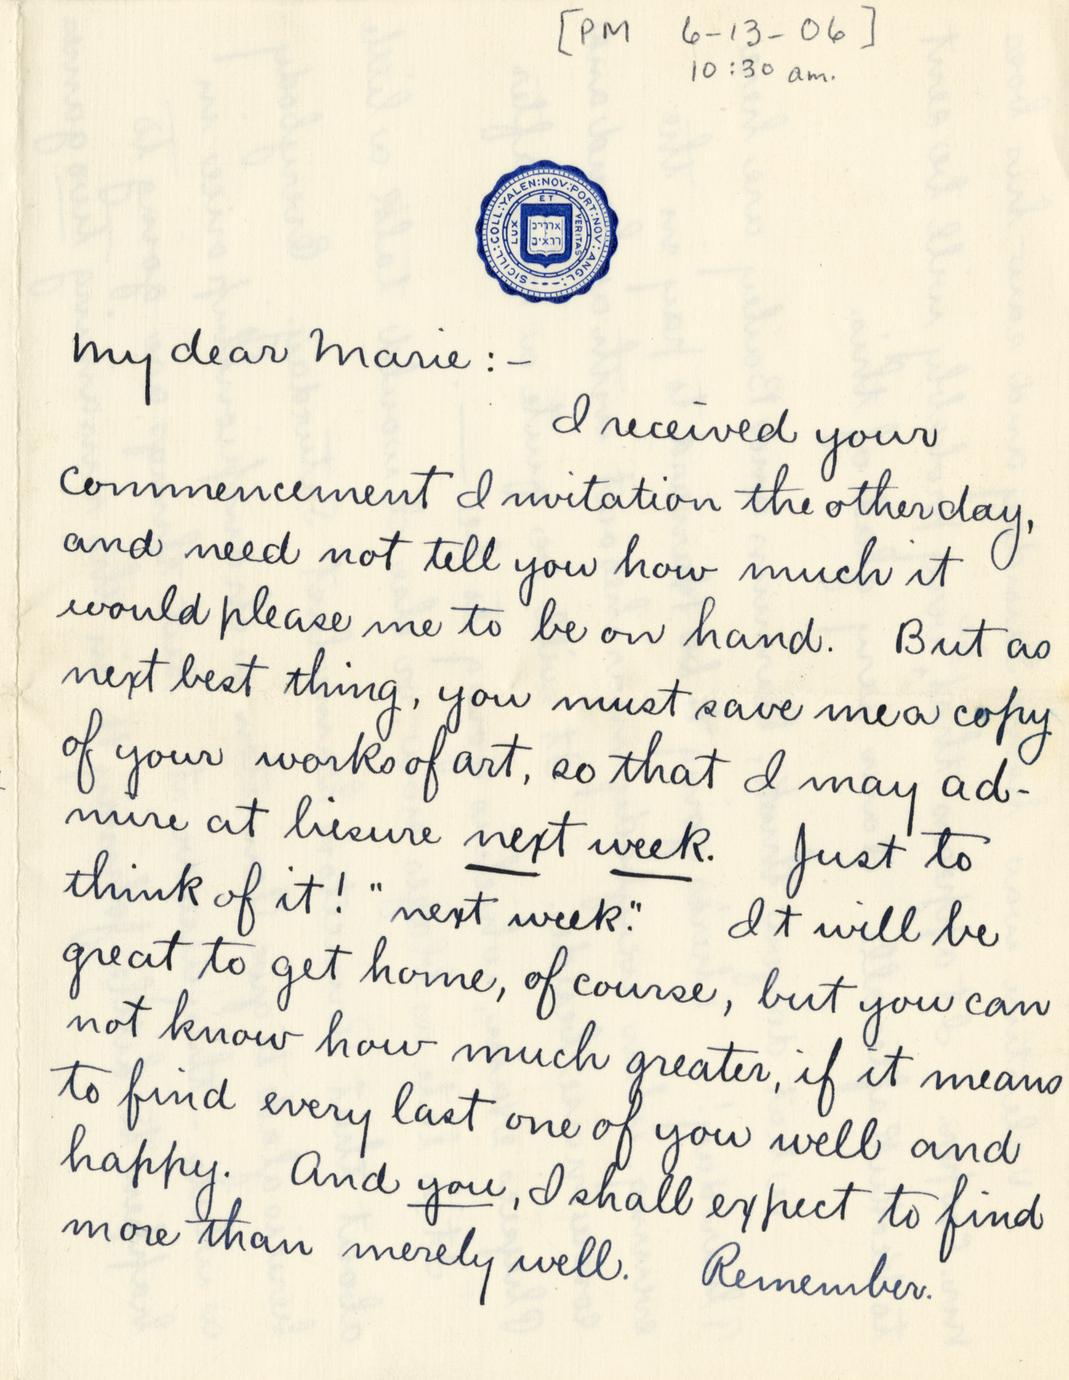 [PM 6-13-06]
10:30 am.
SIGILL:COLL:YALEN:NOV:PORT:NOV:ANGL:
ET
LUX
VERITAS
My dear Marie:-
I received your
commencement Invitation the other day,
and need not tell you how much it
would please me to be on hand. But as
next best thing, you must save me a copy
of your works of art, so that I may ad-
mire at liesure next week. Just to
think of it! "next week". It will be
great to get home, of course, but you can
not know how much greater, if it means
to find every last one of you well and
happy. And you, I shall expect to find
more than merely well. Remember.